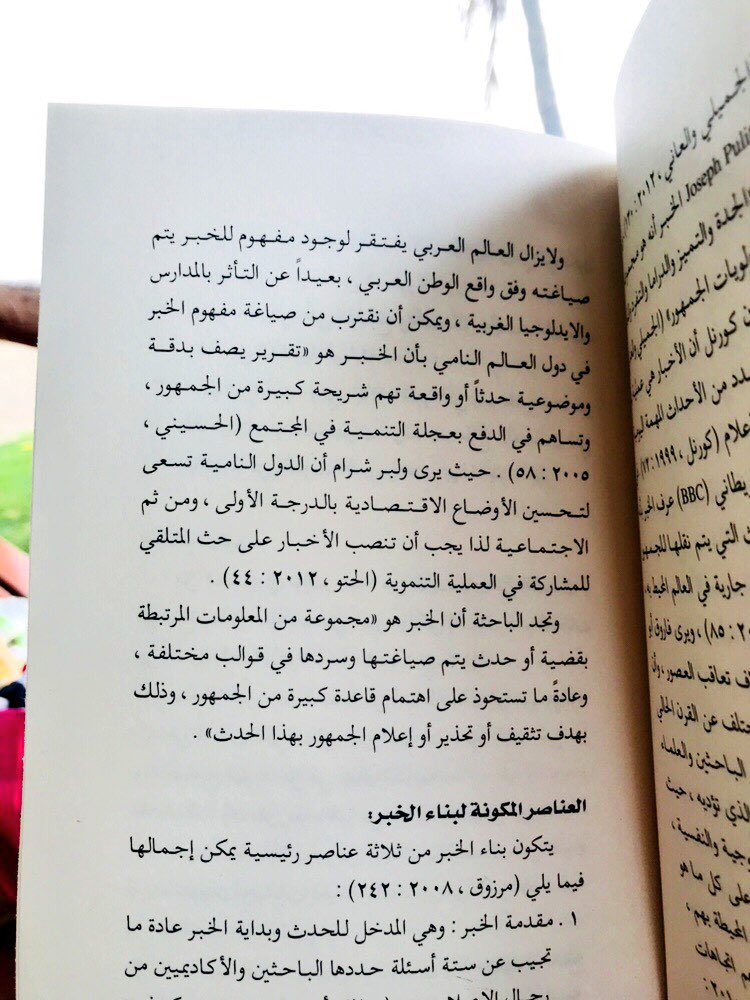 ولايزال العالم العربي يفتقر لوجود مفهوم للخبر يتم
صياغته وفق واقع الوطن العربي ، بعيداً عن التأثر بالمدارس
والايدلوجيا الغربية ، ويمكن أن نقترب من صياغة مفهوم الخبر
في دول العالم النامي بأن الخبر هو «تقرير يصف بدقة
وموضوعية حدثاً أو واقعة تهم شريحة كبيرة من الجمهور ،
وتساهم في الدفع بعجلة التنمية في المجتمع (الحسيني ،
٢٠٠٥ : ٥٨) . حيث يرى ولبر شرام أن الدول النامية تسعى
لتحسين الأوضاع الاقتصادية بالدرجة الأولى ، ومن ثم
الاجتماعية لذا يجب أن تنصب الأخبار على حث المتلقي
للمشاركة في العملية التنموية (الحتو ، ٢٠١٢ : ٤٤) .
وتجد الباحثة أن الخبر هو «مجموعة من المعلومات المرتبطة
بقضية أو حدث يتم صياغتها وسردها في قوالب مختلفة ،
وعادةً ما تستحوذ على اهتمام قاعدة كبيرة من الجمهور ، وذلك
بهدف تثقيف أو تحذير أو إعلام الجمهور بهذا الحدث» .
العناصر المكونة لبناء الخبر:
يتكون بناء الخبر من ثلاثة عناصر رئيسية يمكن إجمالها
فيما يلي (مرزوق ، ٢٠٠٨ : ٢٤٢) :
١ . مقدمة الخبر : وهي المدخل للحدث وبداية الخبر عادة ما
تجيب عن ستة أسئلة حددها الباحثين والأكاديميين من
الجميلي والعاني
Joseph الخبر أنه هو
الجدة والتميز والدراما
لويات الجمهور» (الجميلي
كورنل أن الأخبار هي
دد من الأحداث المهمة
علام (كورنل ، ١٩٩٩:
يطاني (BBC) عرف
التي يتم نقلها
جارية في العالم المحيط
: ٨٥) ، ويرى فاروق أبو
ف تعاقب العصور ، وأن
ختلف عن القرن الحالي
الباحثين والعلماء
الذي تؤديه ، حيث
وجية والنفسية ،
على كل ما هو
المحيطة بهم ،
م اتجاهات